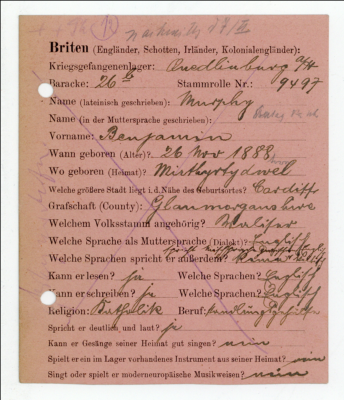 Briten (Engländer, Schotten, Irländer, Kolonialengländer):
Kriegsgefangenenlager: Quedlinburg a/H
Baracke: 26 b Stammrolle Nr.: 9497
Name (lateinisch geschrieben): Murphy
Name (in der Muttersprache geschrieben):
Vorname: Benjamin
Wann geboren (Alter)? 26 Nov 1888
Wo geboren (Heimat)? Mirthyrtydwel
Welche größere Stadt liegt i.d. Nähe des Geburtsortes? Cardiff
Grafschaft (County): Glanmorganshire
Welchem Volksstamm angehörig? Waliser
Welche Sprache als Muttersprache (Dialekt)? Englisch
Welche Sprachen spricht er außerdem?
Kann er lesen? ja Welche Sprachen? Englisch
Kann er schreiben? ja Welche Sprachen? Englisch
Religion: Katholik Beruf: Handlungsgehilfe
Spricht er deutlich und laut? ja
Kann er Gesänge seiner Heimat gut singen? nein
Spielt er ein im Lager vorhandenes Instrument aus seiner Heimat? nein
Singt oder spielt er moderneuropäische Musikweisen? nein